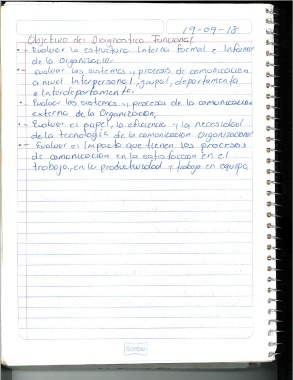 19-09-18
Objetivo del Diagnostico Funcional
- Evaluar la estructura Interna formal e Informal
de la Organizacio.
- evaluar los sistemas y procesos de comunicacion
a nivel Interpersonal, grupal, departamenta
e Interdepartamente.
- Evaluar los sistemas y procesos de la comunicacion
externa de la Organizacion,
- Evaluar el papel, la eficiencia y la necesidad
de la tecnologia de la comunicacion organizacional
- Evaluar el Impacto que tienen los procesos
de comunicacion en la satisfaccion en el
trabajo, en la productividad y trabajo en equipo.
Scribe